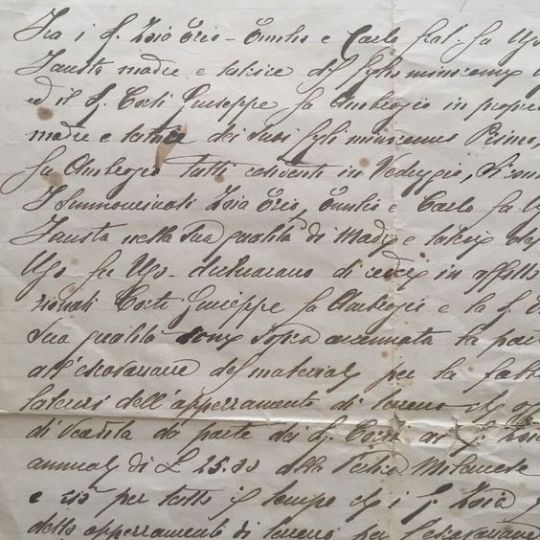 Tra i S. Zoia Erio - Emilio e Carlo frat. fu Ugo
Fausta madre e tutrice dei figli minorenni
ed il S. Corti Giuseppe fu Ambrogio in proprio
madre e tutrice dei suoi figli minorenni Primo,
fu Ambrogio tutti conventi in Vedeggio, si con
I summovinati Zoia Erio, Emilio e Carlo fu
Fausta nella sua qualità di Madre e tutrice
Ugo fu Ugo - dichiarano di cedere in affitto
Corti Giuseppe fu Ambrogio e la S.
sua qualità sopra accennata la parte
all'escavazione del materiale per la
laterizi dell'appezzamento di terreno
di vendita da parte dei S. Corti ai S. Zoia
annual di L 25.30 alla Pertica Milanese
e ciò per tutto il tempo che i S. Zoia
dello appezzamento di terreno per l'escavazione